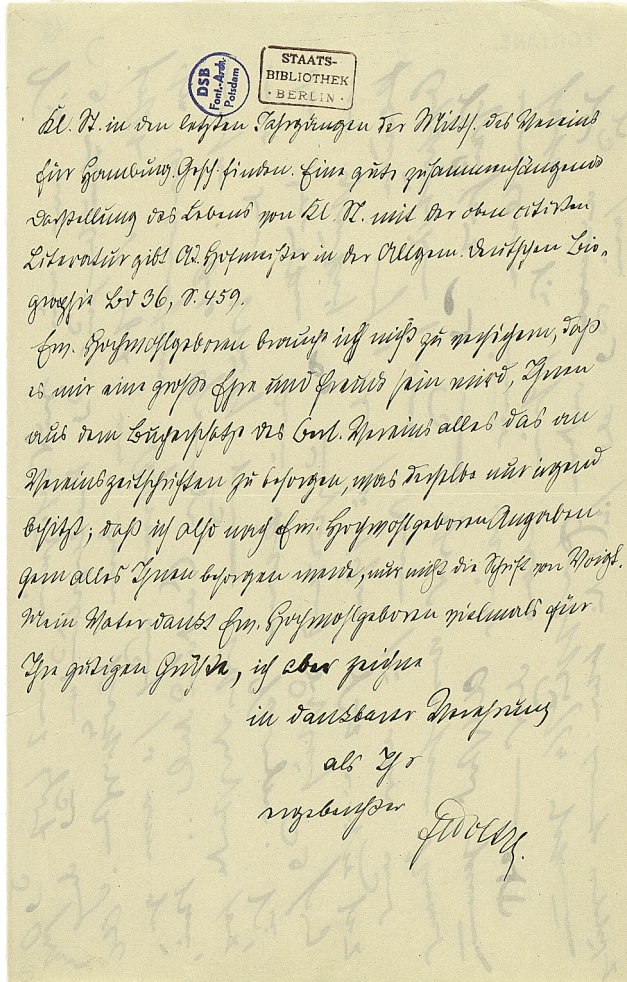 DSB
Font.-Arch.
Potsdam
STAATS-
BIBLIOTHEK
· BERLIN ·
Kl. St. in den letzten Jahrgängen der Mitth. des Vereins
für Hamburg. Gesch. finden. Eine gute zusammenhängende
Darstellung des Lebens von Kl. St. mit der oben citirten
Literatur gibt Ad. Hofmeister in der Allgem. Deutschen Bio-
graphie Bd 36, S. 459.
Ew. Hochwohlgeboren brauche ich nicht zu versichern, daß
es mir eine große Ehre und Freude sein wird, Ihnen
aus dem Bücherschatze des Berl. Vereins alles das an
Vereinszeitschriften zu besorgen, was derselbe nur irgend
besitzt; daß ich also nach Ew. Hochwohlgeboren Angaben
gern alles Ihnen besorgen werde, nur nicht die Schrift von Voigt.
Mein Vater dankt Ew. Hochwohlgeboren vielmals für
Ihre gütigen Grüße, ich aber zeichne
in dankbarer Verehrung
als Ihr
ergebenster